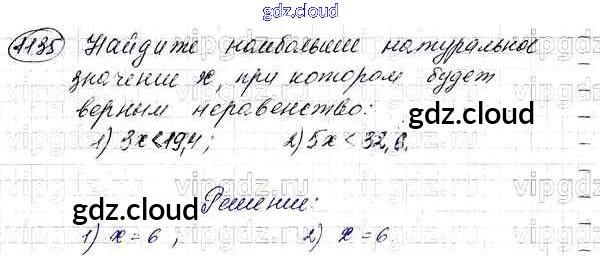 gdz.cloud
1135 Найдите наибольшее натуральное
значение x, при котором будет
верным неравенство:
1) 3x < 19,4; 2) 5x < 32,6.
gdz.cloud
Решение:
gdz.cloud
1) x = 6, 2) x = 6.